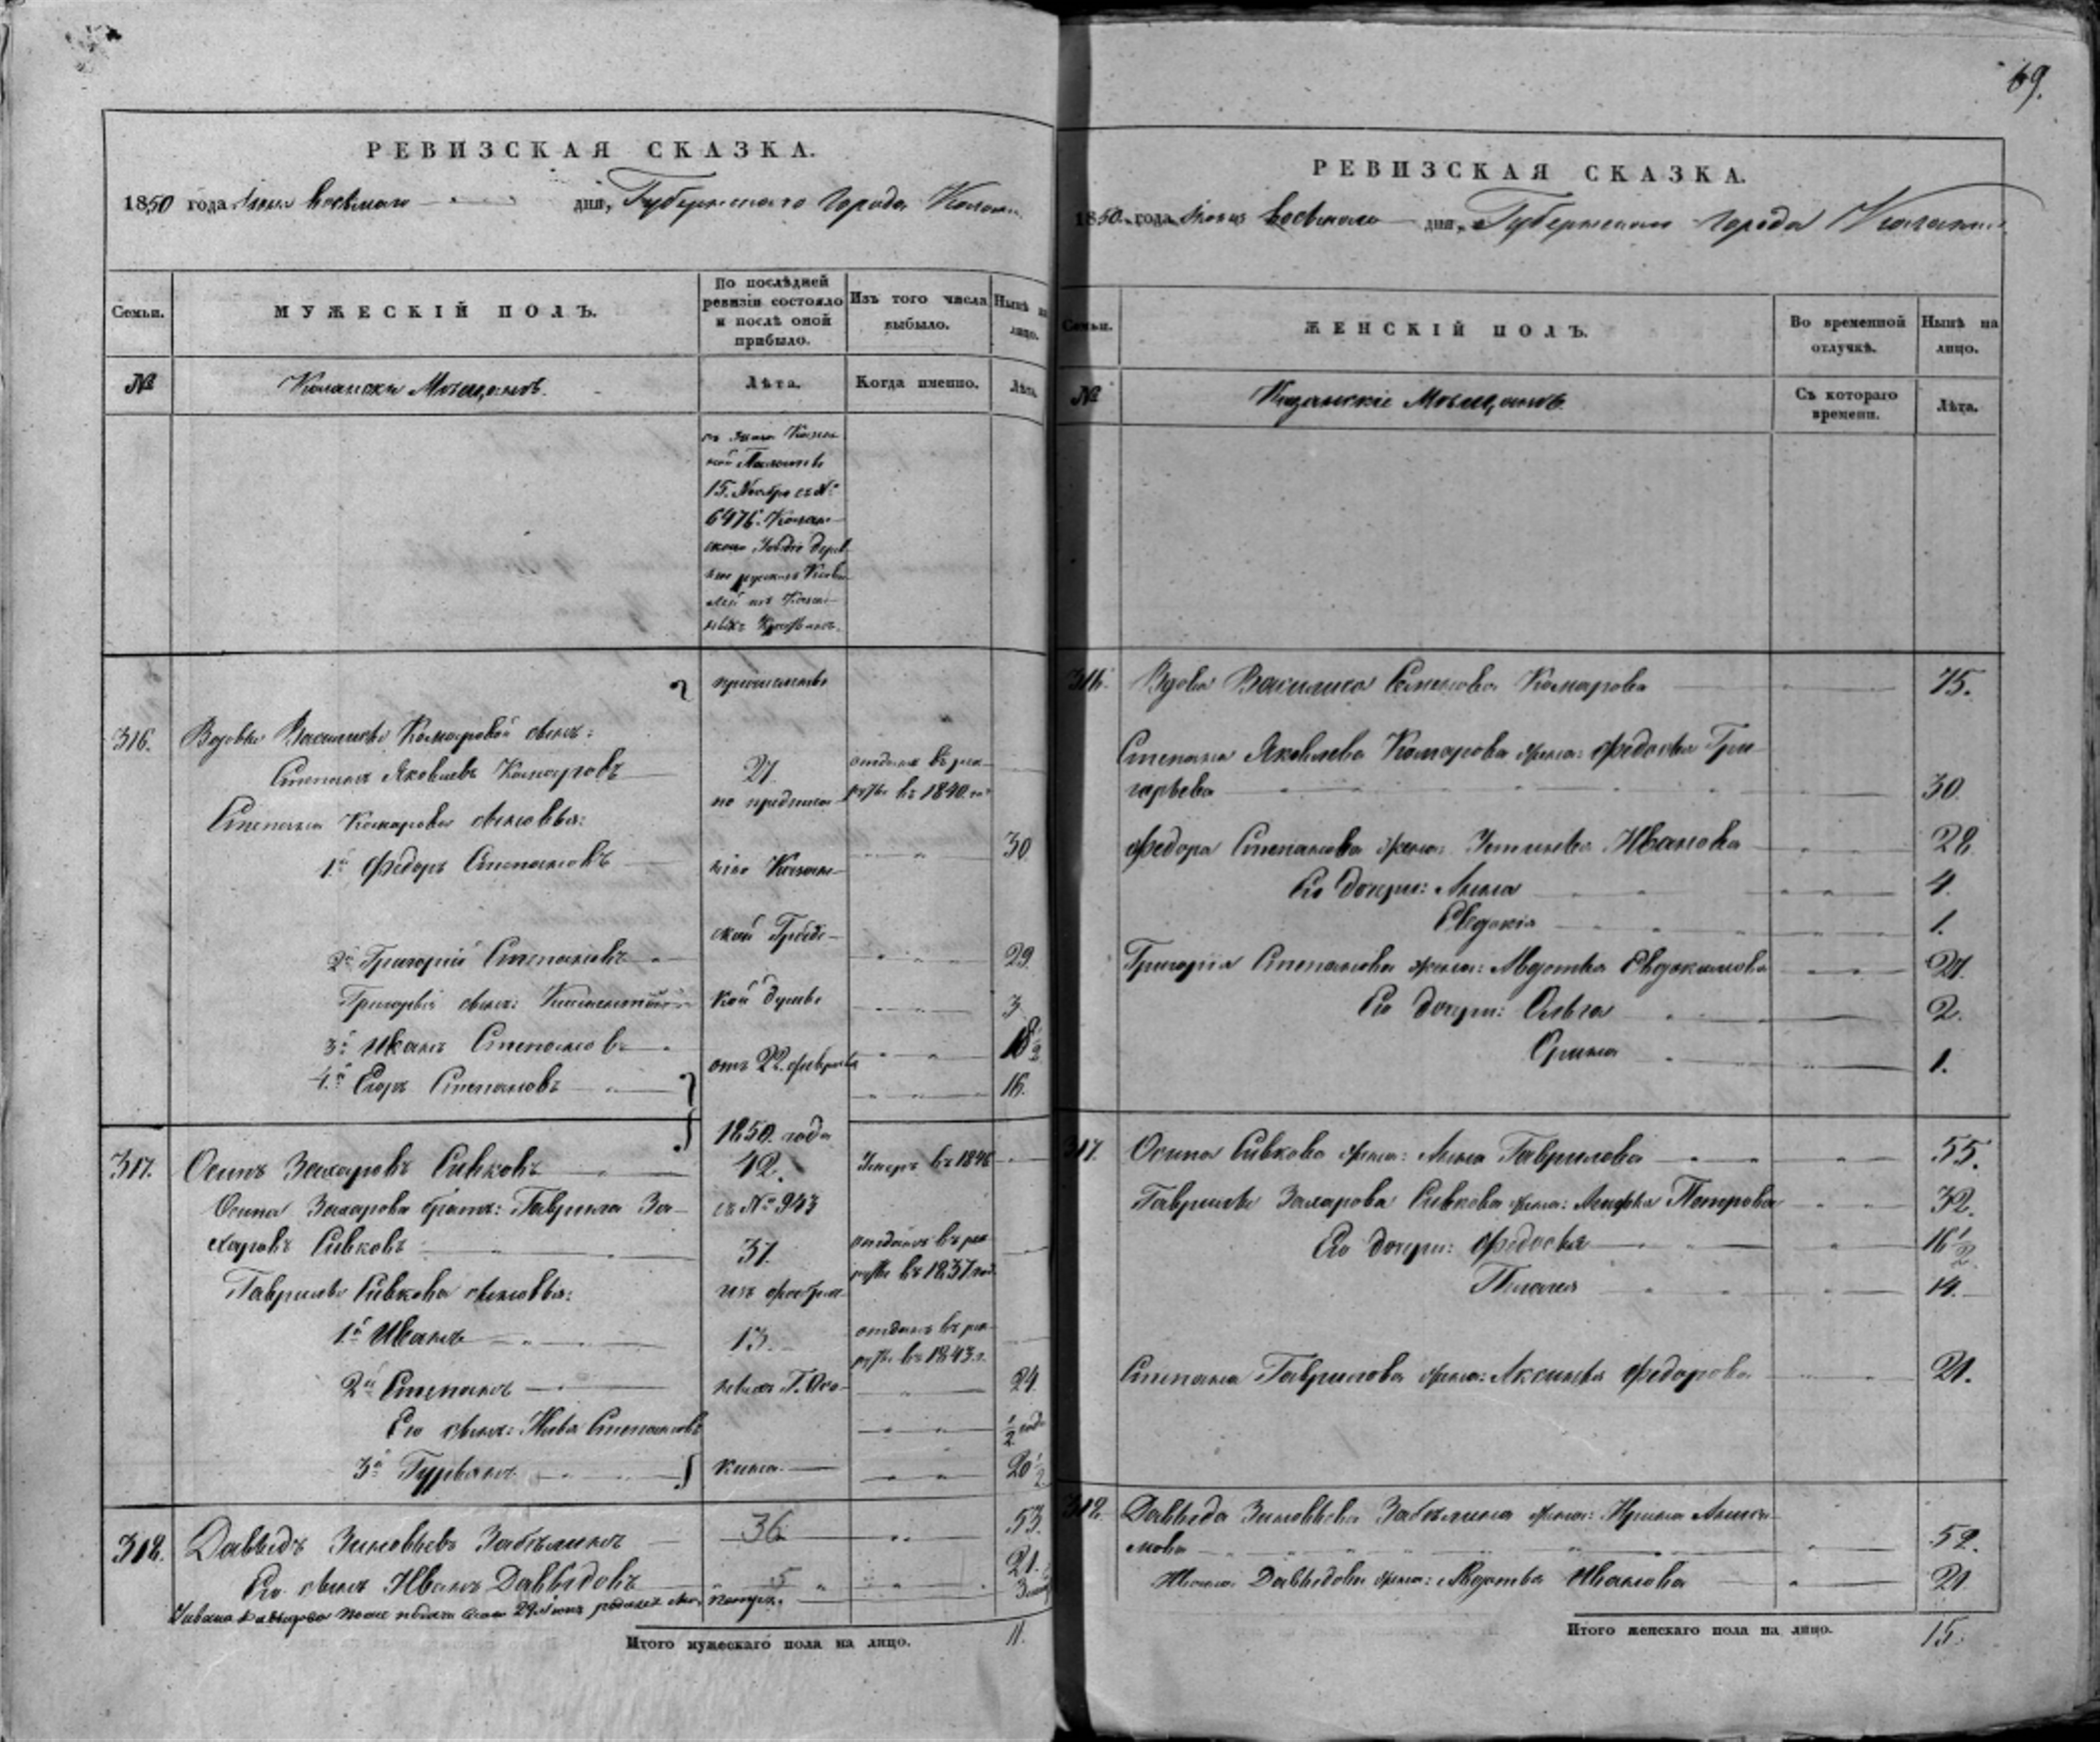 РЕВИЗСКАЯ СКАЗКА.
1850 года Июня восьмаго дня, Губернскаго Города Казани
Семьи.
МУЖЕСКІЙ ПОЛЪ.
По послѣдней ревизіи состояло и послѣ оной прибыло.
Изъ того числа выбыло.
Нынѣ на лицо.
№
Казански Мѣщанъ.
Лѣта.
Когда именно.
Лѣта.
Казен
ной Палаты
15. Ноября съ №
6476. Казан
скаго Уѣзда дерев
ни русских
лей изъ Казен
ныхъ Крестьянъ.
причислены
316. Вдовы Василисы Комаровой сынъ:
Степанъ Яковлевъ Комаровъ 27. отданъ въ рек
по предписа руты въ 1840. го
Степана Комарова сыновья:
1й Федоръ Степановъ нію Казан 30
2й Григорій Степановъ ской Градс 29.
Григорья сынъ: Константинъ кой думы 3.
3й Иванъ Степановъ 18½
4й Егоръ Степановъ отъ 22. февраля 16.
1850. года
317. Осипъ Захаровъ Сивковъ 42. Умеръ въ 1846
Осипа Захарова братъ: Гаврила За съ № 943
харовъ Сивковъ 37. отданъ въ рек
руты въ 1837 год.
Гаврилы Сивкова сыновья:
1й Иванъ 13. отданъ въ рек
руты въ 1843. г.
2й Степанъ 24.
Его сынъ: Степановъ ½ года
3й Гурьянъ кина 20½
318. Давыдъ Зиновьевъ Забѣлинъ 36 53.
Его сынъ Иванъ Давыдовъ 5 21.
У Ивана Давыдова после подачи 29 Июня родился
Итого мужескаго пола на лицо. 11.
69.
РЕВИЗСКАЯ СКАЗКА.
1850. года Июня восьмаго дня, Губернскаго города Казани
Семьи.
ЖЕНСКІЙ ПОЛЪ.
Во временной отлучкѣ.
Нынѣ на лицо.
№
Казанскіе Мѣщанъ
Съ котораго времени.
Лѣта.
316. Вдова Василиса Семенова Комарова 75.
Степана Яковлева Комарова жена: Федосья Гри
горьева 30.
Федора Степанова жена: Устинья Иванова 28.
Его дочери: Анна 4.
Евдокія 1.
Григорія Степанова жена: Авдотья Евдокимова 27.
Его дочери: Ольга 2.
Орина 1.
317. Осипа Сивкова жена: Анна Гаврилова 55.
Гаврилы Захарова Сивкова жена: Петрова 32.
Его дочери: Федосья 16½
Пелагея 14.
Степана Гаврилова жена: Аксинья Федорова 21.
318. Давыда Зиновьева Забѣлина жена: Ирина
мова 52.
Ивана Давыдова жена: Авдотья Иванова 21
Итого женскаго пола на лицо. 15.